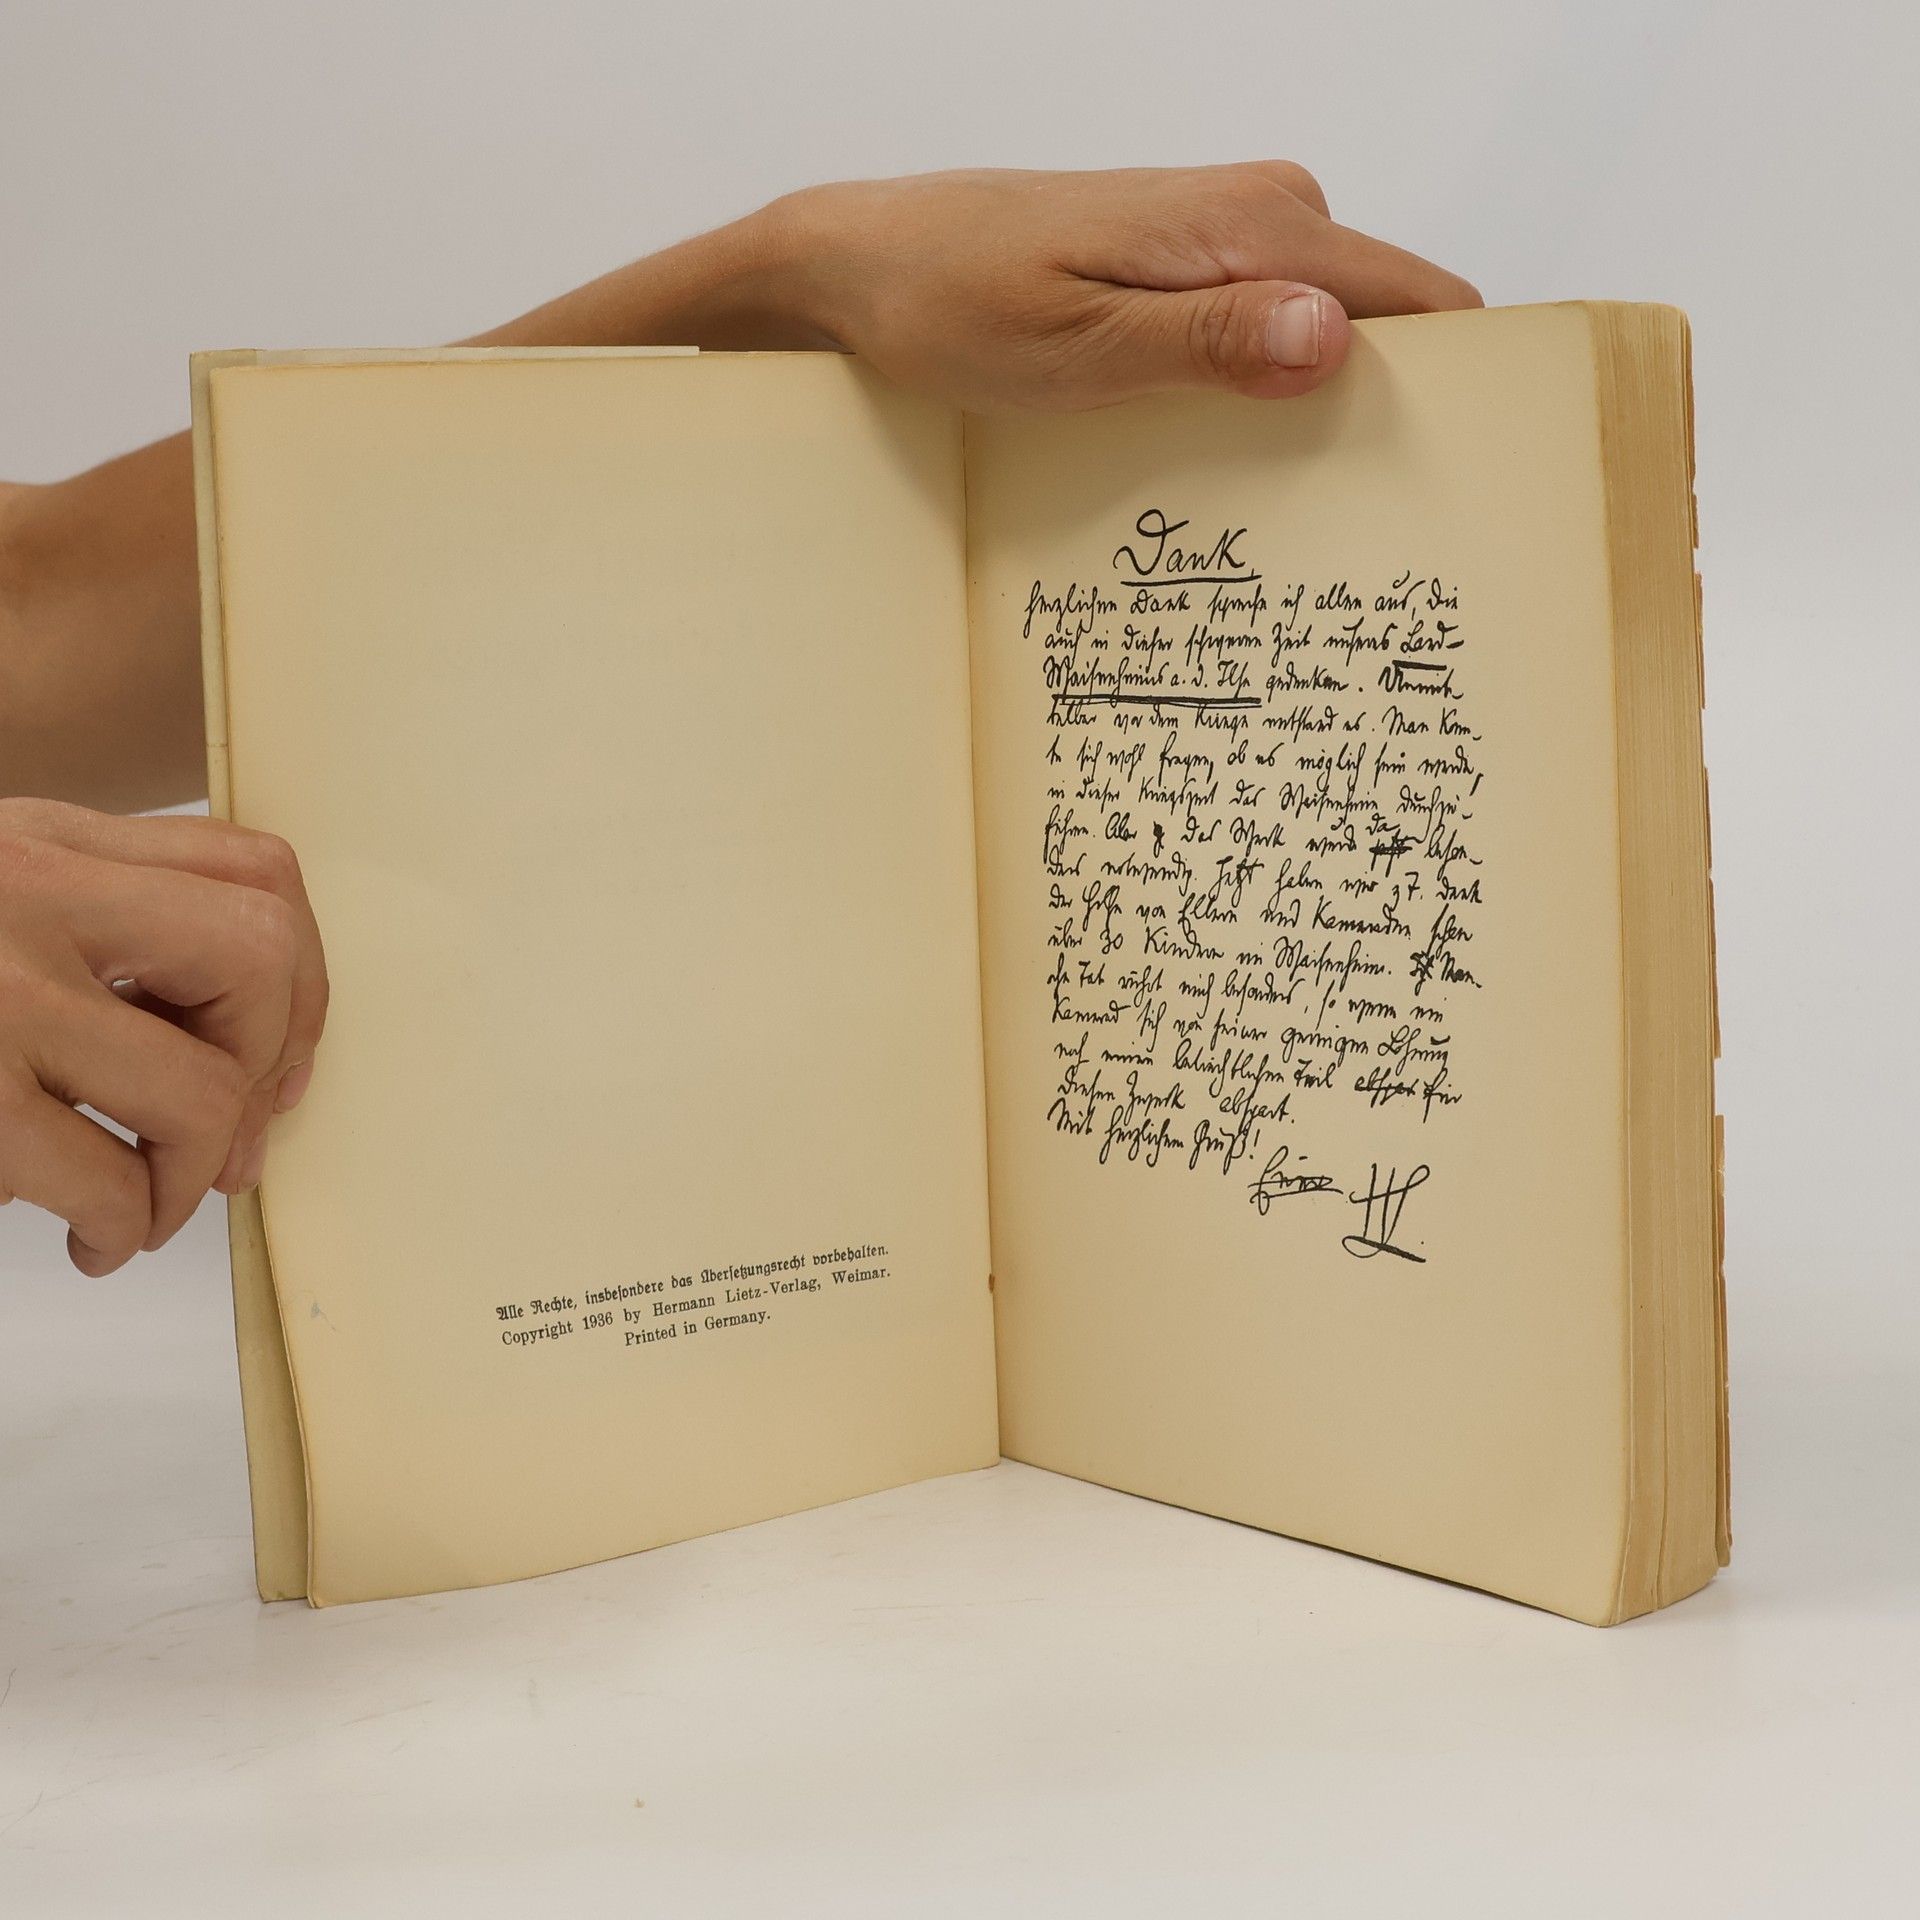 Alle Rechte, insbesondere das Übersetzungsrecht vorbehalten.
Copyright 1936 by Hermann Lietz-Verlag, Weimar.
Printed in Germany.
Dank,
Herzlichen Dank spreche ich allen aus, die
auch in dieser schweren Zeit unseres Land-
Waisenheims a. d. Ilse gedenken. Unmit-
telbar vor dem Kriege entstand es. Man konn-
te sich wohl fragen, ob es möglich sein werde,
in dieser Kriegszeit das Waisenheim durchzu-
führen. Aber das Werk wurde da beson-
ders notwendig. Jetzt haben wir z. T. dank
der Hilfe von Eltern und Kameraden schon
über 30 Kinder im Waisenheim. Man-
che Tat rührt mich besonders, so wenn ein
Kamerad sich von seiner geringen Löhnung
noch einen beträchtlichen Teil abspar für
diesen Zweck abspart.
Mit herzlichem Gruß!
Euer HL